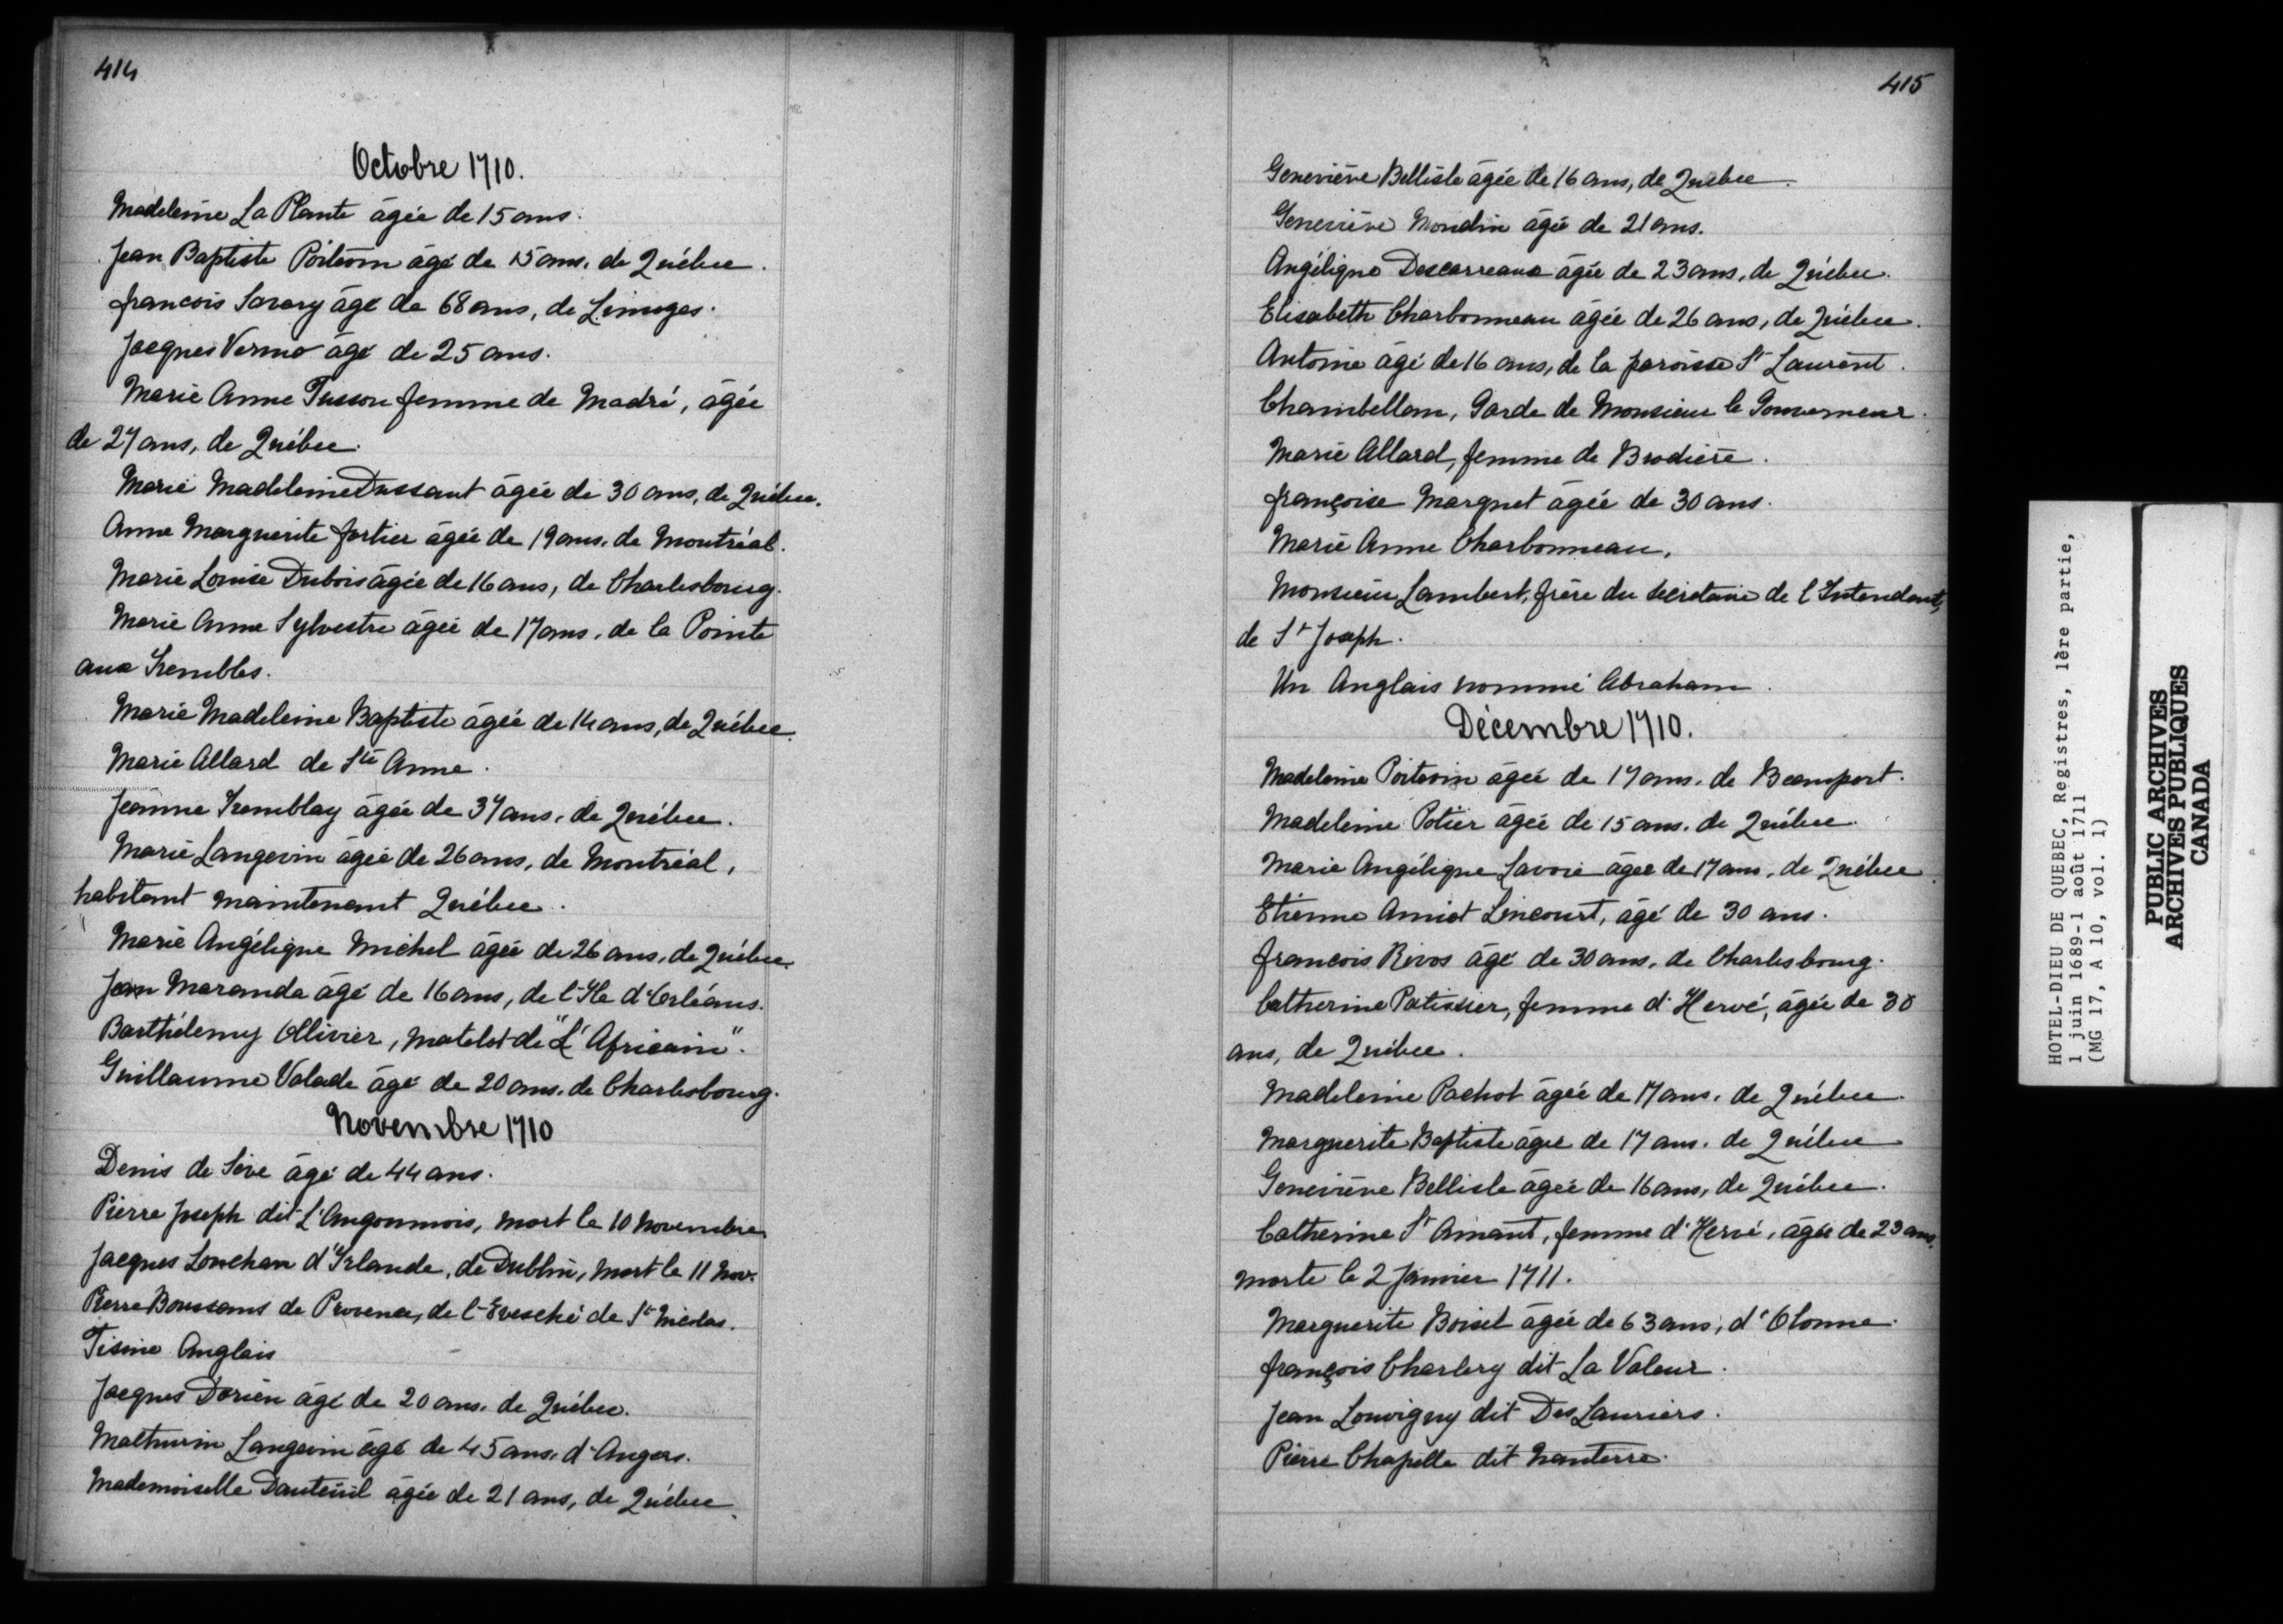 414
Octobre 1710.
Madeleine La Plante âgée de 15 ans.
Jean Baptiste Poitevin âgé de 15 ans, de Québec.
francois Savary âgé de 68 ans, de Limoges.
Jacques Verno âgé de 25 ans.
Marie Anne Tusson femme de Madré, âgée
de 27 ans, de Québec.
Marie Madeleine Dussaut âgée de 30 ans, de Québec.
Anne Marguerite fortier âgée de 19 ans, de Montréal.
Marie Louise Dubois âgée de 16 ans, de Charlesbourg.
Marie Anne Sylvestre âgée de 17 ans, de la Pointe
aux Trembles.
Marie Madeleine Baptiste âgée de 14 ans, de Québec.
Marie Allard de Ste Anne.
Jeanne Tremblay âgée de 37 ans, de Québec.
Marie Langevin âgée de 26 ans, de Montréal,
habitant maintenant Québec.
Marie Angélique Michel âgée de 26 ans, de Québec.
Jean Maranda âgé de 16 ans, de l'Ile d'Orléans.
Barthélemy Ollivier, matelot de "L'Africain".
Guillaume Valade âgé de 20 ans, de Charlesbourg.
Novembre 1710
Denis de Sève âgé de 44 ans.
Pierre Joseph dit L'Angoumois, mort le 10 novembre
Jacques Louchan d'Irlande, de Dublin, mort le 11 Nov.
Pierre Boussans de Provence, de l'Evesché de St Nicolas.
Tisine Anglais
Jacques Dorien âgé de 20 ans, de Québec.
Mathurin Langevin âgé de 45 ans, d'Angers.
Mademoiselle Dauteüil âgée de 21 ans, de Québec.
415
Geneviève Bellisle âgée de 16 ans, de Québec.
Geneviève Mondin âgée de 21 ans.
Angélique Descarreaux âgée de 23 ans, de Québec.
Elisabeth Charbonneau âgée de 26 ans, de Québec.
Antoine âgé de 16 ans, de la paroisse St Laurent.
Chambellan, Garde de Monsieur le Gouverneur.
Marie Allard, femme de Brodière.
françoise Marquet âgée de 30 ans.
Marie Anne Charbonneau.
Monsieur Lambert, frère du secrétaire de l'Intendant,
de St Joseph.
Un Anglais nommé Abraham.
Décembre 1710.
Madeleine Poitevin âgée de 17 ans, de Beauport.
Madeleine Potier âgée de 15 ans, de Québec.
Marie Angélique Savoie âgée de 17 ans, de Québec.
Etienne Amiot Lincourt, âgé de 30 ans.
francois Rivos âgé de 30 ans, de Charlesbourg.
Catherine Patissier, femme d'Hervé, âgée de 30
ans, de Québec.
Madeleine Pachot âgée de 17 ans, de Québec.
Marguerite Baptiste âgée de 17 ans, de Québec
Geneviève Bellisle âgée de 16 ans, de Québec.
Catherine St Amant, femme d'Hervé, âgée de 23 ans,
morte le 2 Janvier 1711.
Marguerite Boisel âgée de 63 ans, d'Olonne.
françois Charlery dit La Valeur.
Jean Louvigny dit Des Lauriers.
Pierre Chapelle dit Nanterre.
HOTEL-DIEU DE QUEBEC, Registres, 1ère partie,
1 juin 1689-1 août 1711
(MG 17, A 10, vol. 1)
PUBLIC ARCHIVES
ARCHIVES PUBLIQUES
CANADA